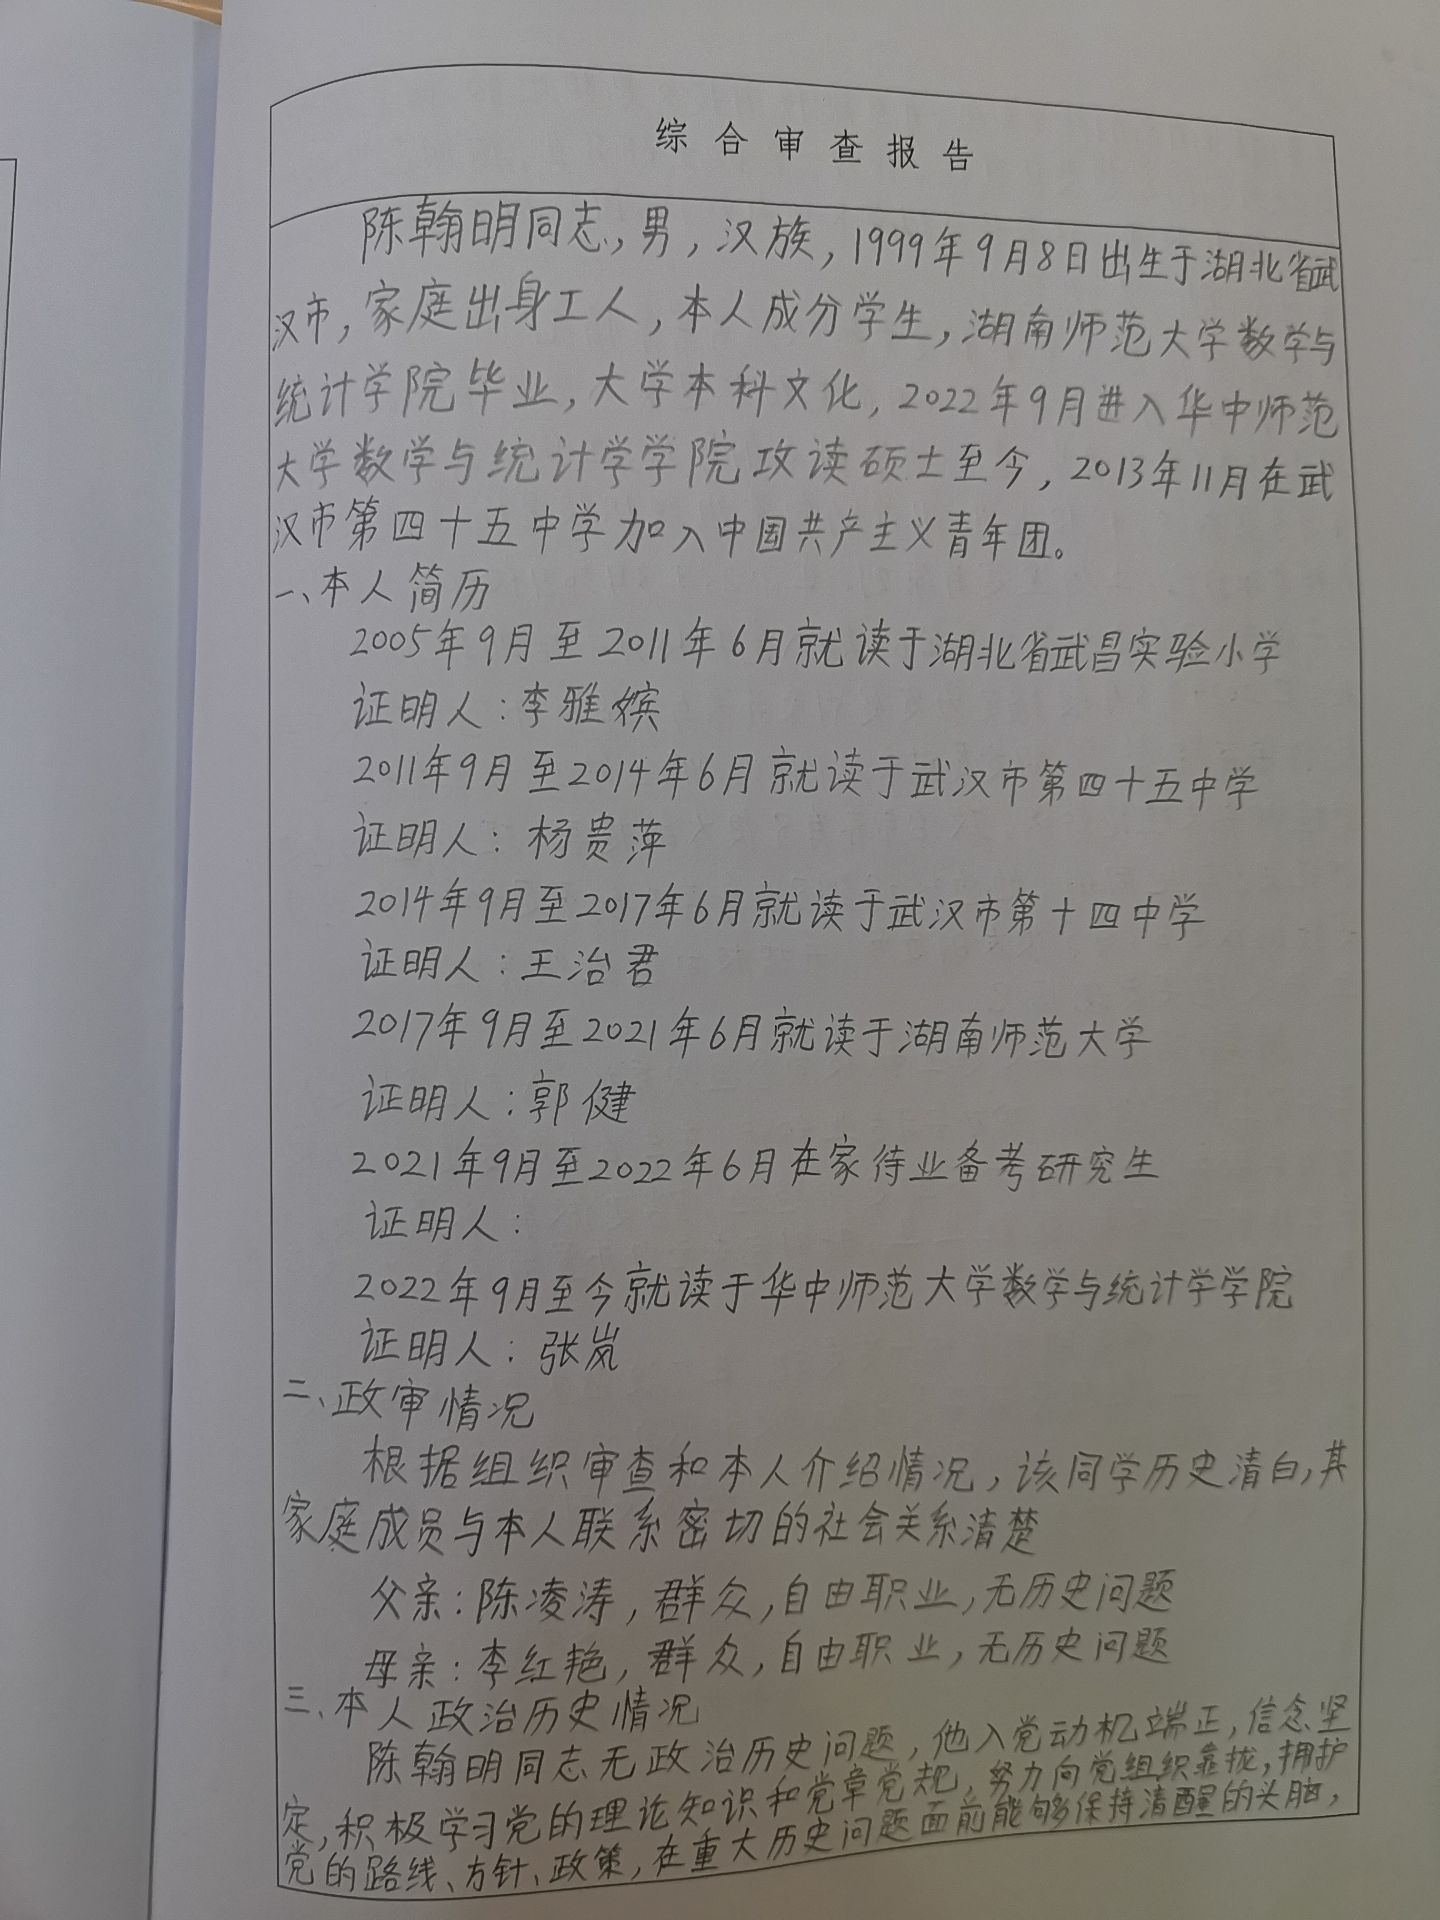 综合审查报告
陈翰明同志,男,汉族,1999年9月8日出生于湖北省武
汉市,家庭出身工人,本人成分学生,湖南师范大学数学与
统计学院毕业,大学本科文化,2022年9月进入华中师范
大学数学与统计学学院攻读硕士至今,2013年11月在武
汉市第四十五中学加入中国共产主义青年团。
一、本人简历
2005年9月至2011年6月就读于湖北省武昌实验小学
证明人:李雅嫔
2011年9月至2014年6月就读于武汉市第四十五中学
证明人:杨贵萍
2014年9月至2017年6月就读于武汉市第十四中学
证明人:王治君
2017年9月至2021年6月就读于湖南师范大学
证明人:郭健
2021年9月至2022年6月在家待业备考研究生
证明人:
2022年9月至今就读于华中师范大学数学与统计学学院
证明人:张岚
二、政审情况
根据组织审查和本人介绍情况,该同学历史清白,其
家庭成员与本人联系密切的社会关系清楚
父亲:陈凌涛,群众,自由职业,无历史问题
母亲:李红艳,群众,自由职业,无历史问题
三、本人政治历史情况
陈翰明同志无政治历史问题,他入党动机端正,信念坚
定,积极学习党的理论知识和党章党规,努力向党组织靠拢,拥护
党的路线、方针、政策,在重大历史问题面前能够保持清醒的头脑,